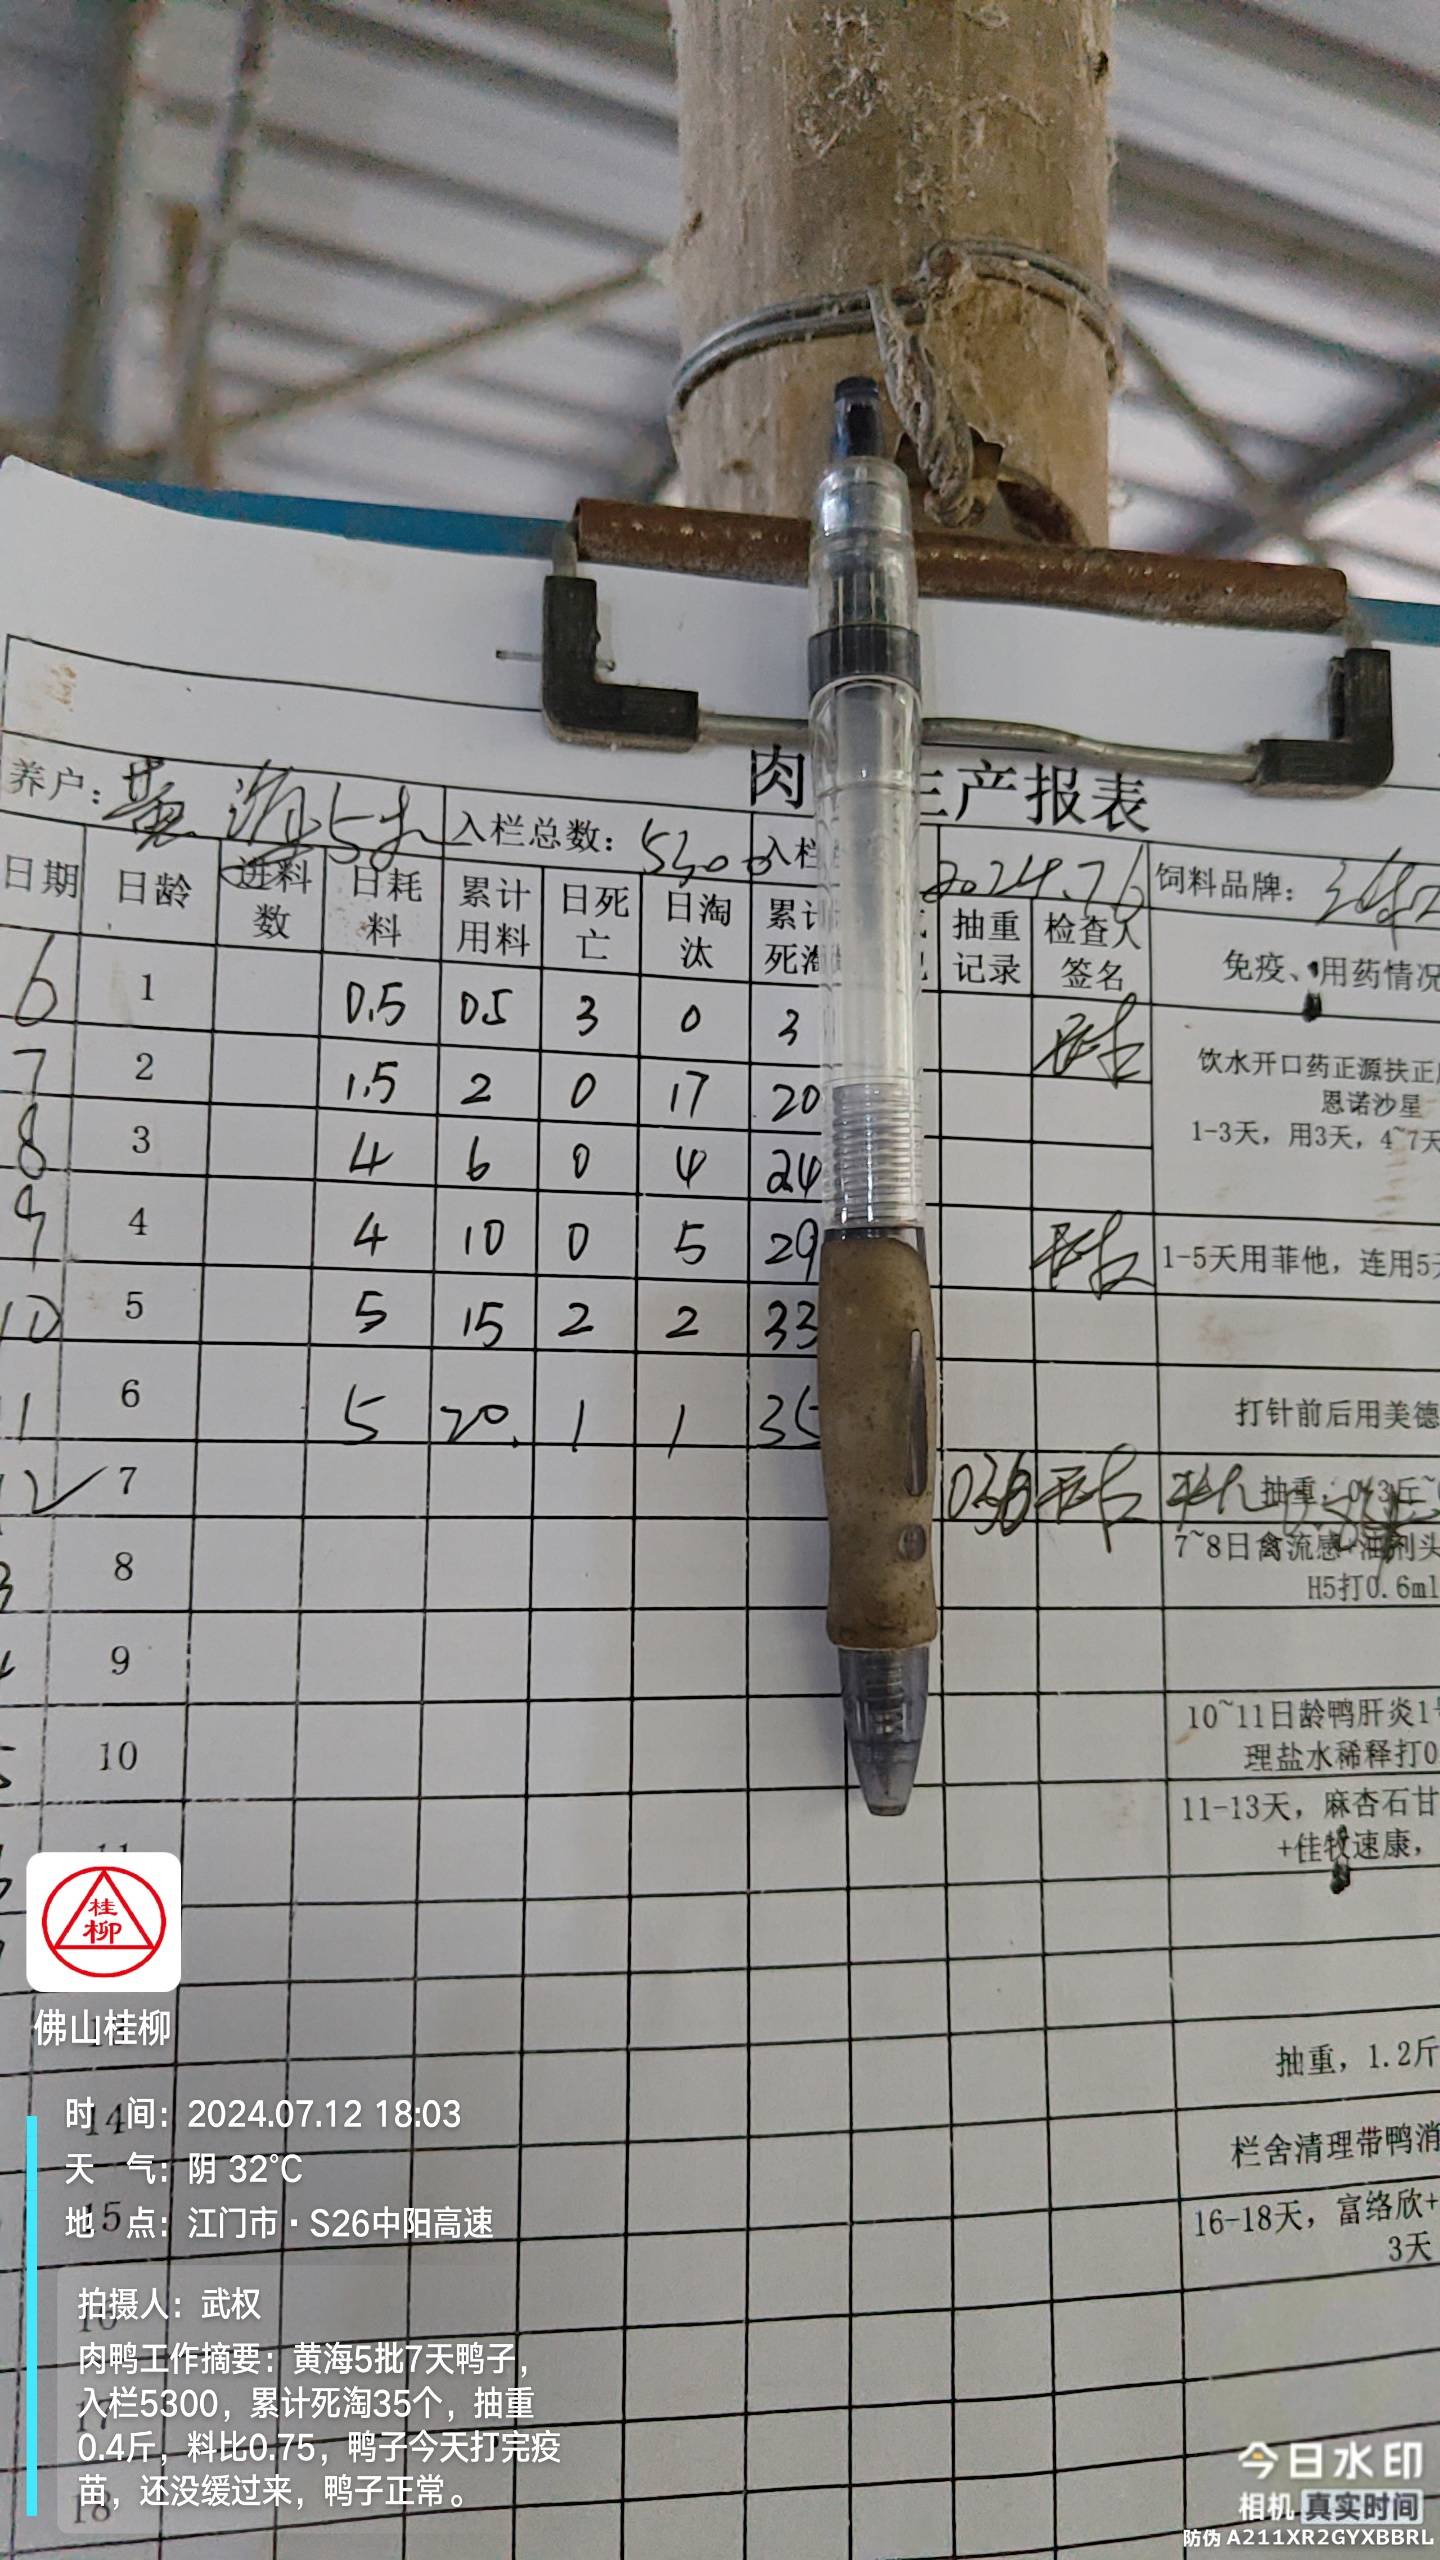 肉 生产报表
养户：黄海5批 入栏总数：5300 入栏 2024.7.6 饲料品牌：
日期 日龄 进料数 日耗料 累计用料 日死亡 日淘汰 累计死淘 抽重记录 检查人签名 免疫、用药情况
6 1 0.5 0.5 3 0 3
饮水开口药正源扶正
恩诺沙星
1-3天，用3天，4~7天
7 2 1.5 2 0 17 20
8 3 4 6 0 4 24
9 4 4 10 0 5 29 1-5天用菲他，连用5天
10 5 5 15 2 2 33
11 6 5 20 1 1 35 打针前后用美德
12 7 抽重，0.43斤~
8 7~8日禽流感+油剂头
H5打0.6ml
9
10 10~11日龄鸭肝炎1
理盐水稀释打0
11 11-13天，麻杏石甘
+佳牧速康，
抽重，1.2斤
14 栏舍清理带鸭消
15 16-18天，富络欣+
3天
16
17
18
桂柳
佛山桂柳
时 间：2024.07.12 18:03
天 气：阴 32℃
地 点：江门市·S26中阳高速
拍摄人：武权
肉鸭工作摘要：黄海5批7天鸭子，
入栏5300，累计死淘35个，抽重
0.4斤，料比0.75，鸭子今天打完疫
苗，还没缓过来，鸭子正常。
今日水印
相机 真实时间
防伪 A211XR2GYXBBRL